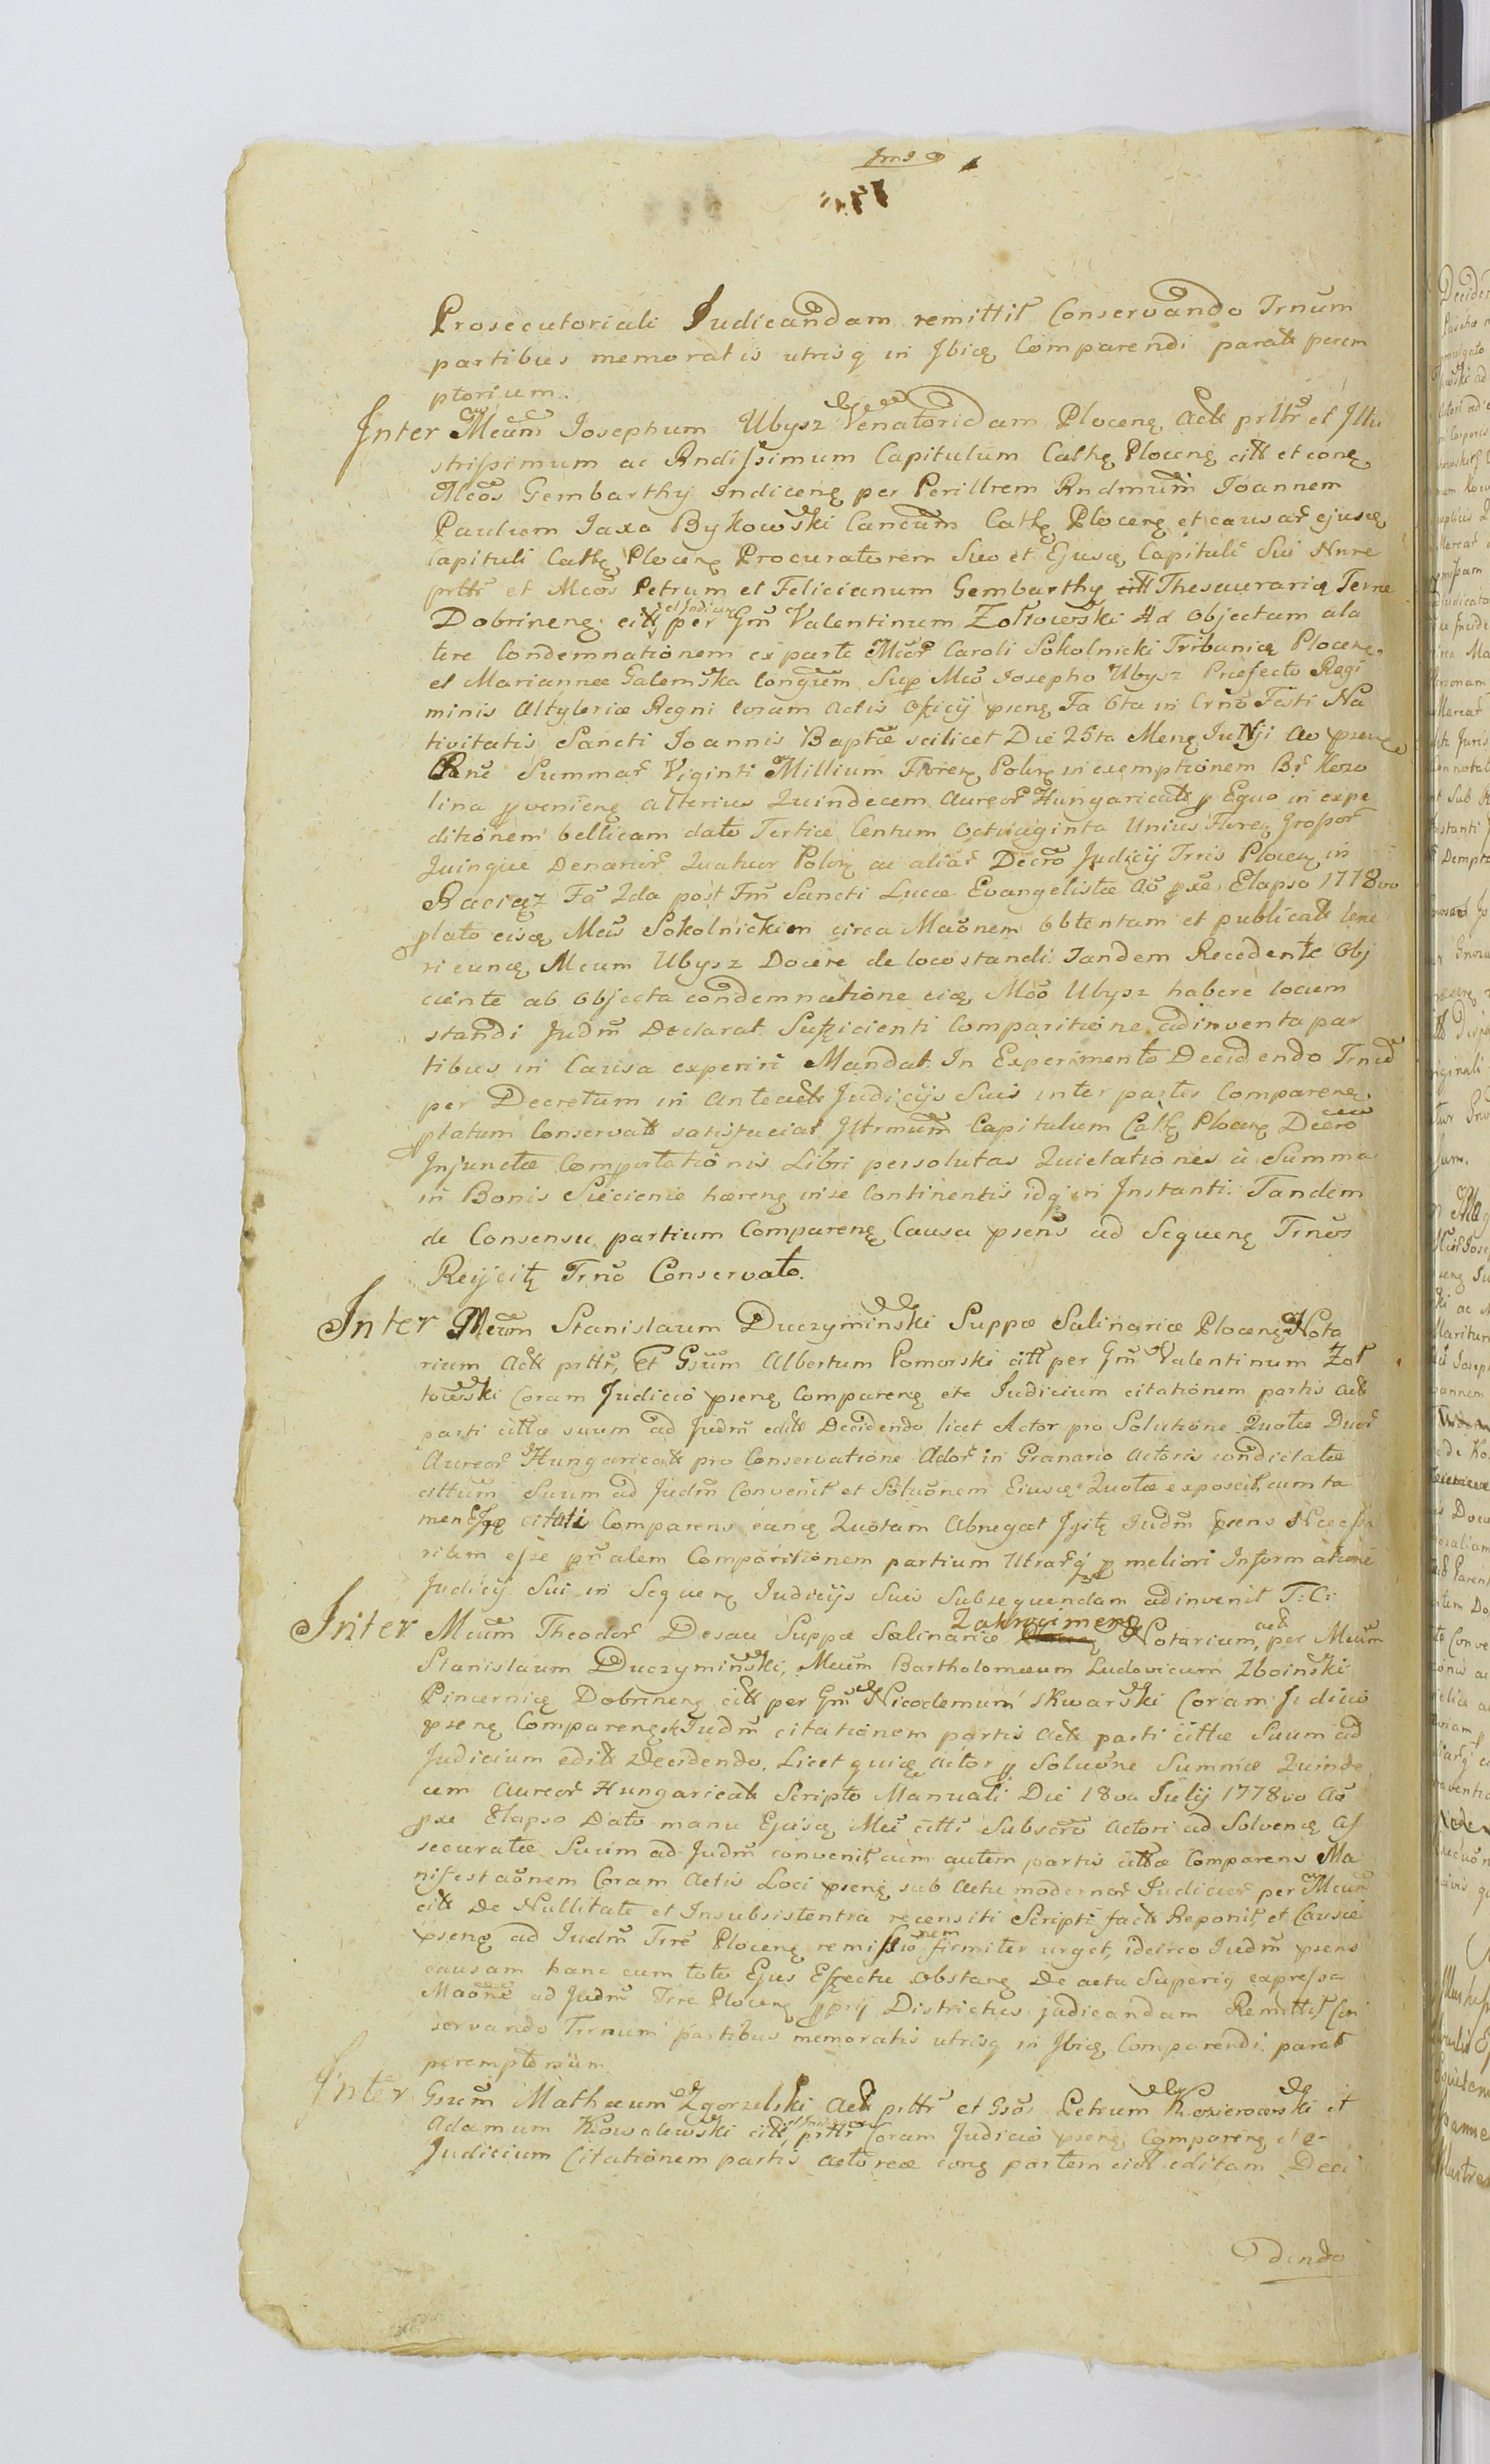 Prosecutoriali Judicandam remittit Conservando Trnum
partibus memoratis utrisq in Jbidę Comparendi paratt perem
ptorium.
Inter Mcum Josephum Ubysz Venatoridam Plocenę actt prttr et Jllu
strissimum ac Rndissimum Capitulum Cathę Plocenę citt et conę
Mcos Gembarthy Indicenę per Perillrem Rndmum Joannem
Paulum Jaxa Bykowski Cancum Cathę Plocenę et causar ejusdę
Capituli Cathę Plocenę Procuratorem Suo et Ejusdę Capituli Sui Nnre
prttr et Mcos Petrum et Felicianum Gembarthy citt Thesaurarię Terrae
Dobrinenę citt et Indicenę per Gm Valentinum Zołtowski Ad Objectam ala
tere Condemnationem ex parte Mcor Caroli Sokolnicki Tribunię Plocenę
et Mariannae Galemska Congum Sup Mco Josepho Ubysz Praefecto Regi
minis Altyleriae Regni coram Actis Officij psenę Fa 6ta in Crno Festi Na
tivitatis Sancti Joannis Baptae scilicet Die 25ta Menę Junji ao psenę
Rane Summar Viginti Millium Floreę Polnę in exemptionem Br
lina pvenienę alterius Quindecem Aureor Hungaricatt p Equo in expe
ditionem bellicam dato Tertiae Centum Octuaginta Unius Floreę Grossor
Quinque Denarior Quatuor Polnę ac aliar Decro Judicij Trris Plocenę in
Raciąz Fa 2da post Fm Sancti Lucae Evangelistae ao pxe Elapso 1778vo
plato eisdę Mcis Sokolnickim circa Maonem obtentam et publicatt
ri eundę Mcum Ubysz Docere de loco standi. Tandem Recedente Obj
ciente ab objecta condemnatione eidę Mco Ubysz habere locum
standi Judm Declarat. Sufficienti Comparitione adinventa par
tibus in Causa experiri Mandat. In Experimento Decidendo Trnus
per Decretum in anteactt Judicijs Suis inter partes Comparenę
platum Conservatt satisfaciat Jllrmum Capitulum Cathę Plocenę Decro
Injunctae Comportationis Libri persolutas Quietationes a Summa
in Bonis Siecienie haerenę in se Continentis idq in Instanti. Tandem
de Consensu partium Comparenę Causa psens ad Sequenę Trnos
Reijcitę Trno Conservato.
Inter Mcum Stanislaum Duczyminski Suppae Salinariae Plocenę Nota
rium actt prttr, et Gsum Albertum Pomorski citt per Gm Valentinum Zoł
towski Coram Judicio psenę Comparenę etc Judicium citationem partis actt
parti cittae suum ad Judm editt Decidendo, licet Actor pro Solutione Quotae Duor
Aureor Hungaricatt pro Conservatione Ador in Granario Actoris condictatae
cittum Suum ad Judm Convenit et Soluonem Eiusdę Quotae exposcit, cum ta
men citati Comparens eandę Quotam Abnegat Jgitę Judm psens Necessa
rium esse psalem Comparitionem partium Utrarq p meliori Informatione
Judicij Sui in Sequenę Judicijs Suis Subsequendam adinvenit T: C:
Inter Mcum Theodor Desau Suppae Salinariae Zakrocimenę Notarium, actt per Mcum
Stanislaum Duczyminski, Mcum Bartholomaeum Ludovicum Zboinski
Pincernię Dobrinenę citt per Gm Nicodemum Skwarski Coram Judicio
psenę Comparenę et Judm citationem partis actt parti cittae Suum ad
Judicium editt Decidendo, Licet quidę Actor p Soluone Summae Quinde
cem Aureor Hungaricatt Scripto Manuali Die 18va Julij 1778vo ao
pxe Elapso Dato manu Ejusdę Mci citti Subscro Actori ad Solvenę As
securatae Suum ad Judm convenit, cum autem partis cittae Comparens Ma
nifestaonem Coram Actis Loci psenę sub actu modernor Judicior per Mcum
citt De Nullitate et Insubsistentia recensiti Scripti factt Reponit, et Causae
psenę ad Judm Trre Plocenę remissionem firmiter urget, idcirco Judm psens
causam hanc cum toto Ejus Effectu obstane De actu Superiq expressa
Maone ad Judm Trre Plocenę pprij Districtus judicandam Remittit, Con
servando Trnum partibus memoratis utrisq in Jbidę Comparendi paratt
peremptorium
Inter Gsum Mathaeum Zgorzelski actt prttr et Gsos Petrum Kozierowski et
Adamum Kowalewski citt, prttr Coram Judicio psenę Comparenę etc
Judicium Citationem partis actoreae conę partem citt editam Deci
dendo